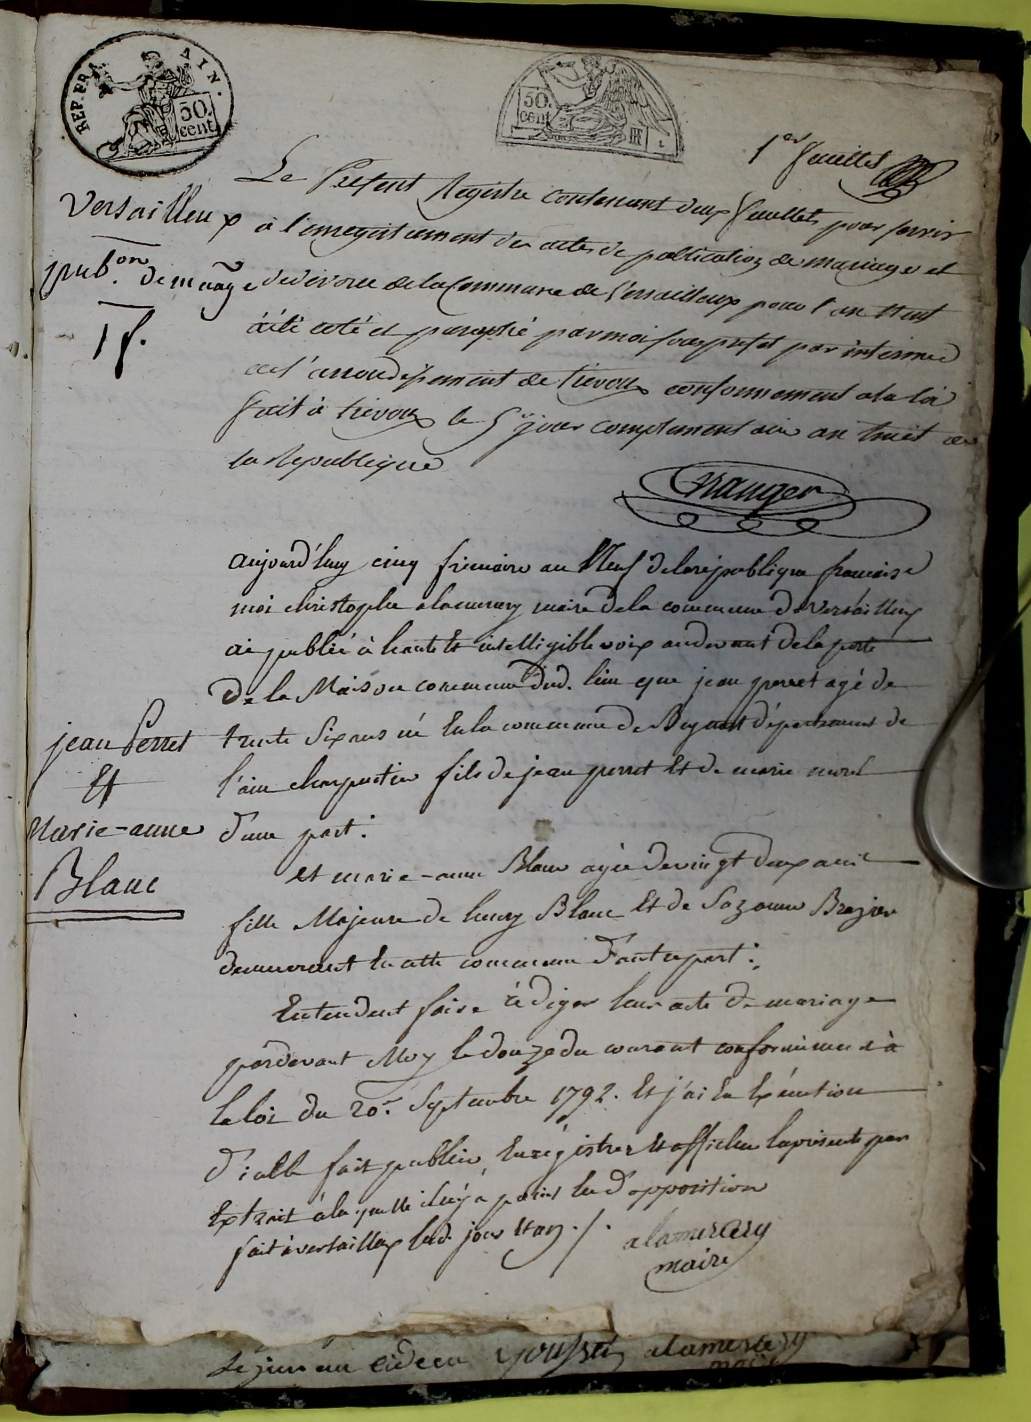 REP. FRA AIN.
50. cent.
50. cent.
1er feuillet
Versailleux
pub.on de mariage
1 f.
Le Present Registre contenant deux feuillets pour servir
à l'enregistrement des actes de publication de mariage et
de divorce de la Commune de Versailleux pour l'an neuf
à été coté et paraphé par moi sousprefet par interime
de l'arrondissement de trevoux conformement a la loi
fait à trevoux le 5e jour complementaire an huit de
la Republique
aujourd'huy cinq frimaire an Neuf de la république francaise
moi christophe alamercery maire de la commune de Versailleux
ai publié à haute et intelligible voix au devant de la porte
De la Maison commune dud. lieu que jean perret agé de
trente six ans né En la commune de département de
l'ain charpentier fils de jean perret Et de marie morel
d'une part :
jean Perret
Et
Marie-anne
Blanc
et marie-anne Blanc agée de vingt deux ans
fille Majeure de henry Blanc Et de Suzanne Brazier
demeurant En cette commune D'autre part :
Entendent faire rédiger leur acte De mariage
pardevant Moy le douze du courant conformément à
la loi du 20e. Septembre 1792. Et j'ai En Exécution
D'icelle fait publier, Enregistrer Et afficher la présente par
Extrait à la quelle il n'y a point Eu d'opposition
fait à versailleux led. jour Et an ./.
alamercery
maire
alamercery
maire